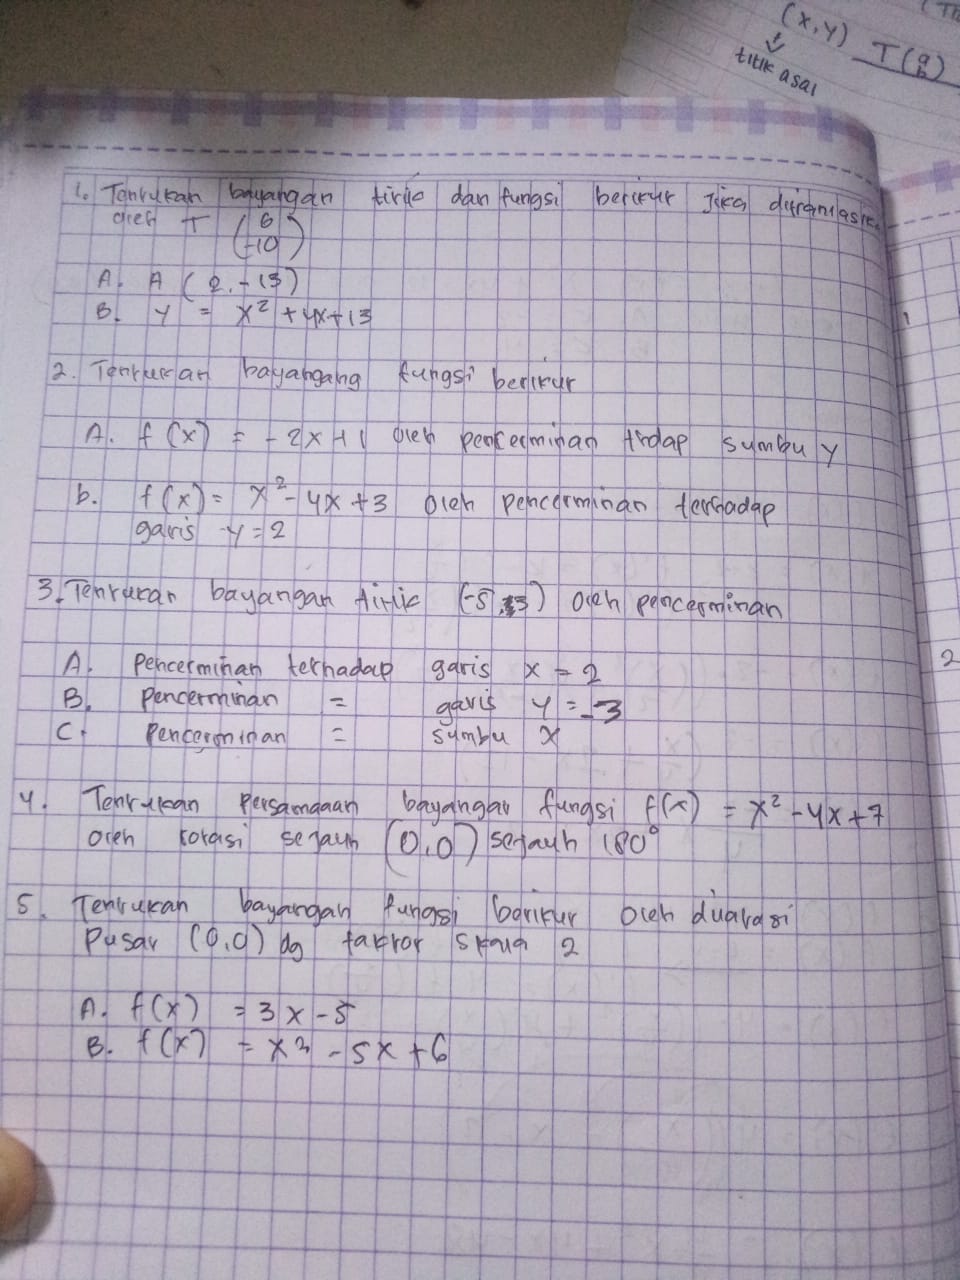 (x,y) T(a
b)
titik asal
1. Tentukan bayangan titik dan fungsi berikut jika ditranslasik
oleh T (6
-10)
A. A (2,-13)
B. y = x² + 4x+13
2. Tentukan bayangang fungsi berikut
A. f(x) = -2x+1 oleh pencerminan trdap sumbu y
b. f(x) = x² - 4x +3 oleh pencerminan terhadap
garis y=2
3. Tentukan bayangan titik (-5, 3) oleh pencerminan
A. Pencerminan terhadap garis x = 2
B. Pencerminan = garis y = -3
C. Pencerminan = sumbu x
4. Tentukan Persamaaan bayangan fungsi f(x) = x² - 4x + 7
oleh rotasi sejauh (0,0) sejauh 180°
5. Tentukan bayangan fungsi berikut oleh duatasi
Pusat (0,0) dg faktor skala 2
A. f(x) = 3x - 5
B. f(x) = x² - 5x + 6
2